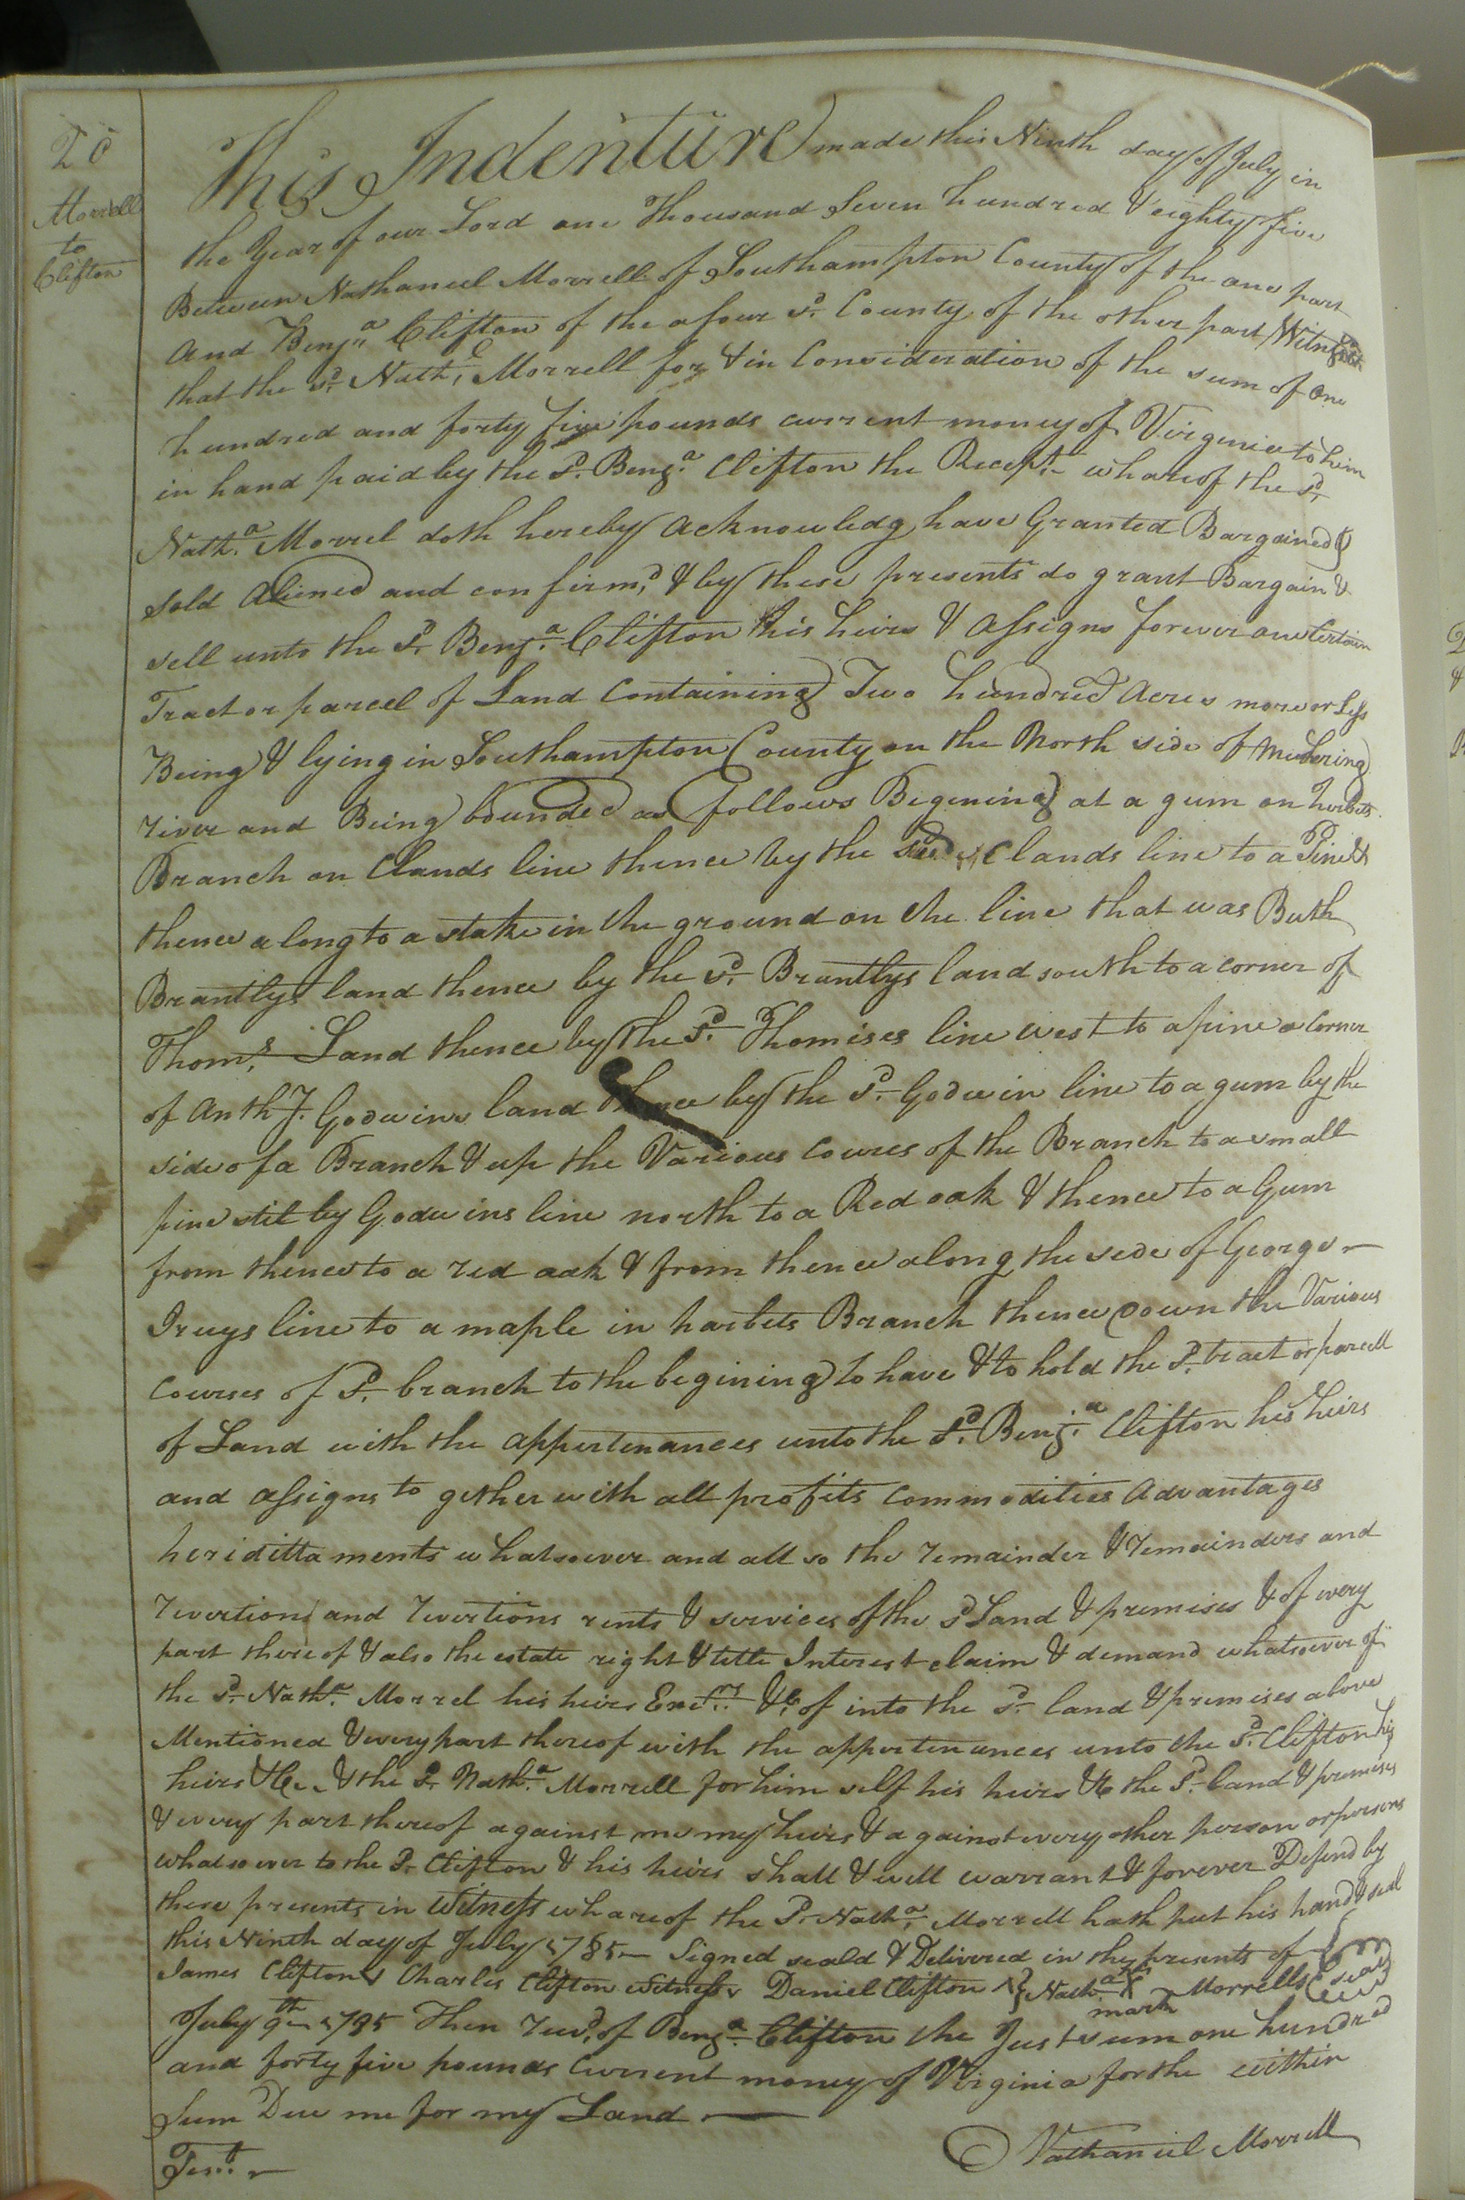 Morrell
to
Clifton
This Indenture made this Ninth day of July in
the Year of our Lord one Thousand Seven hundred & eighty five
Between Nathaniel Morrell of Southampton County of the one part
and Benja Clifton of the afour sd. County of the other part Witnesseth
that the sd. Nathl. Morrell for & in Consideration of the sum of one
hundred and forty five pounds current money of Virginia to him
in hand paid by the sd. Benja. Clifton the Recept. whareof the sd.
Natha. Morrel doth hereby acknowledg have Granted Bargained
sold aliened and confirm,d & by these presents do grant Bargain &
sell unto the sd. Benja. Clifton his heirs & assigns forever one Certain
Tract or parcel of Land Containing Two hundred acres more or Less
Being & lying in Southampton County on the North side of Meherring
river and Being bounded as follows Begining at a gum on
Branch on Clands line thence by the Clands line to a Pine &
thence along to a stake in the ground on the line that was Buth
Brantlys land thence by the sd. Brantlys land south to a corner of
Thoms. Land thence by the sd. Thomises line west to a pine a Corner
of Anth J. Godwins land thence by the sd. Godwin line to a gum by the
side of a Branch & up the Various Cources of the Branch to a small
pine stil by Godwins line north to a Red oak & thence to a Gum
from thence to a red oak & from thence along the side of George
Ivuys line to a maple in harbets Branch thence down the Various
Courses of sd. branch to the begining to have & to hold the sd. tract or parcell
of Land with the appertenances unto the sd. Benja. Clifton his heirs
and assigns to gether with all profits Commodities Advantages
heridittaments whatsoever and all so the remainder & remainders and
revertion and revertions rents & services of the sd Land & premises & of every
part there of & also the estate right & title Interest claim & demand whatsoever of
the sd. Natha. Morrel his heirs &c. of into the sd. land & premises above
Mentioned & every part thereof with the appertenances unto the sd. Clifton his
heirs &c. & the sd. Natha. Morrell for him self his heirs &c the sd. land & premises
& every part thereof against me my heirs & against every other person or persons
whatsoever to the sd. Clifton & his heirs shall & will warrant & forever Defend by
these presents in Witness whareof the sd. Natha. Morrell hath put his hand & seal
this Ninth day of July 1785 Signed seald & Delivered in the presents of
James Clifton Charles Clifton Witness Daniel Clifton Natha. X Morrells seal
mark
July 9th 1785 Then recd. of Benja. Clifton the Just sum one hundred
and forty five pounds Current money of Virginia for the within
Sum Due me for my Land
Nathaniel Morrell
Test.